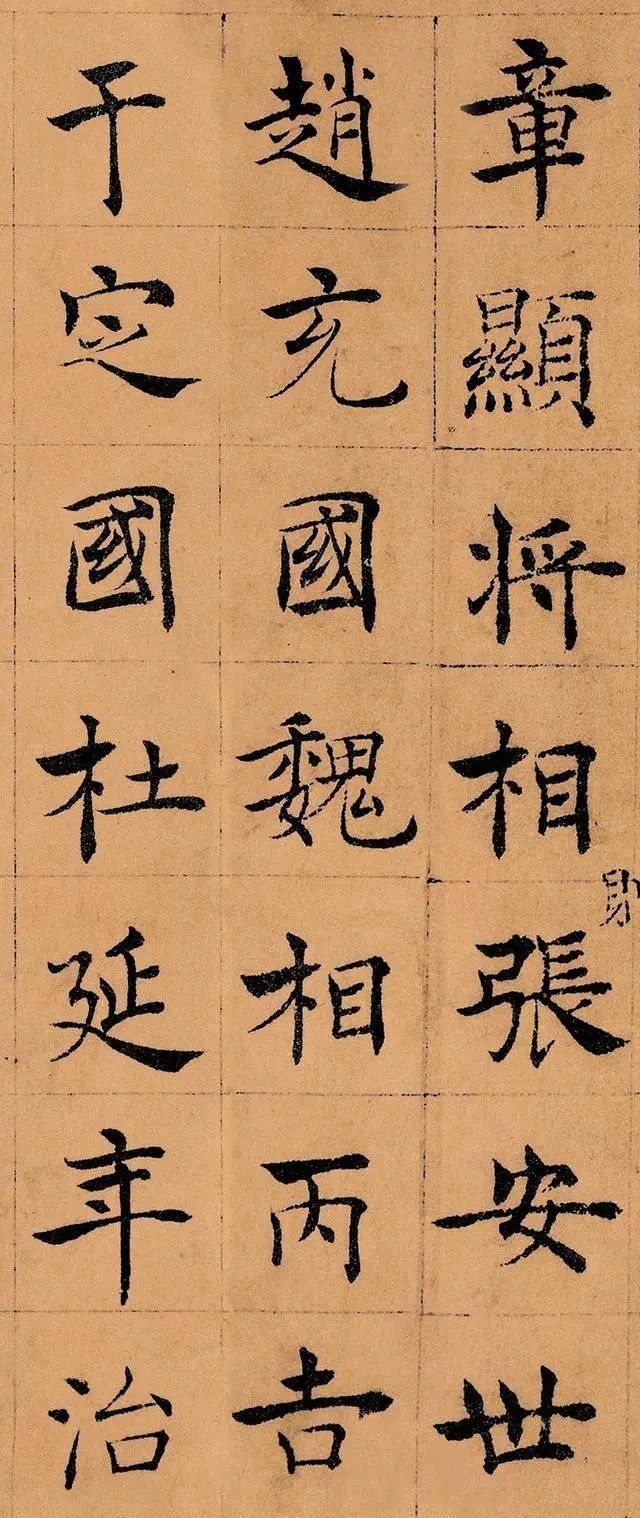 章顯將相張安世
趙充國魏相丙吉
于定國杜延年治